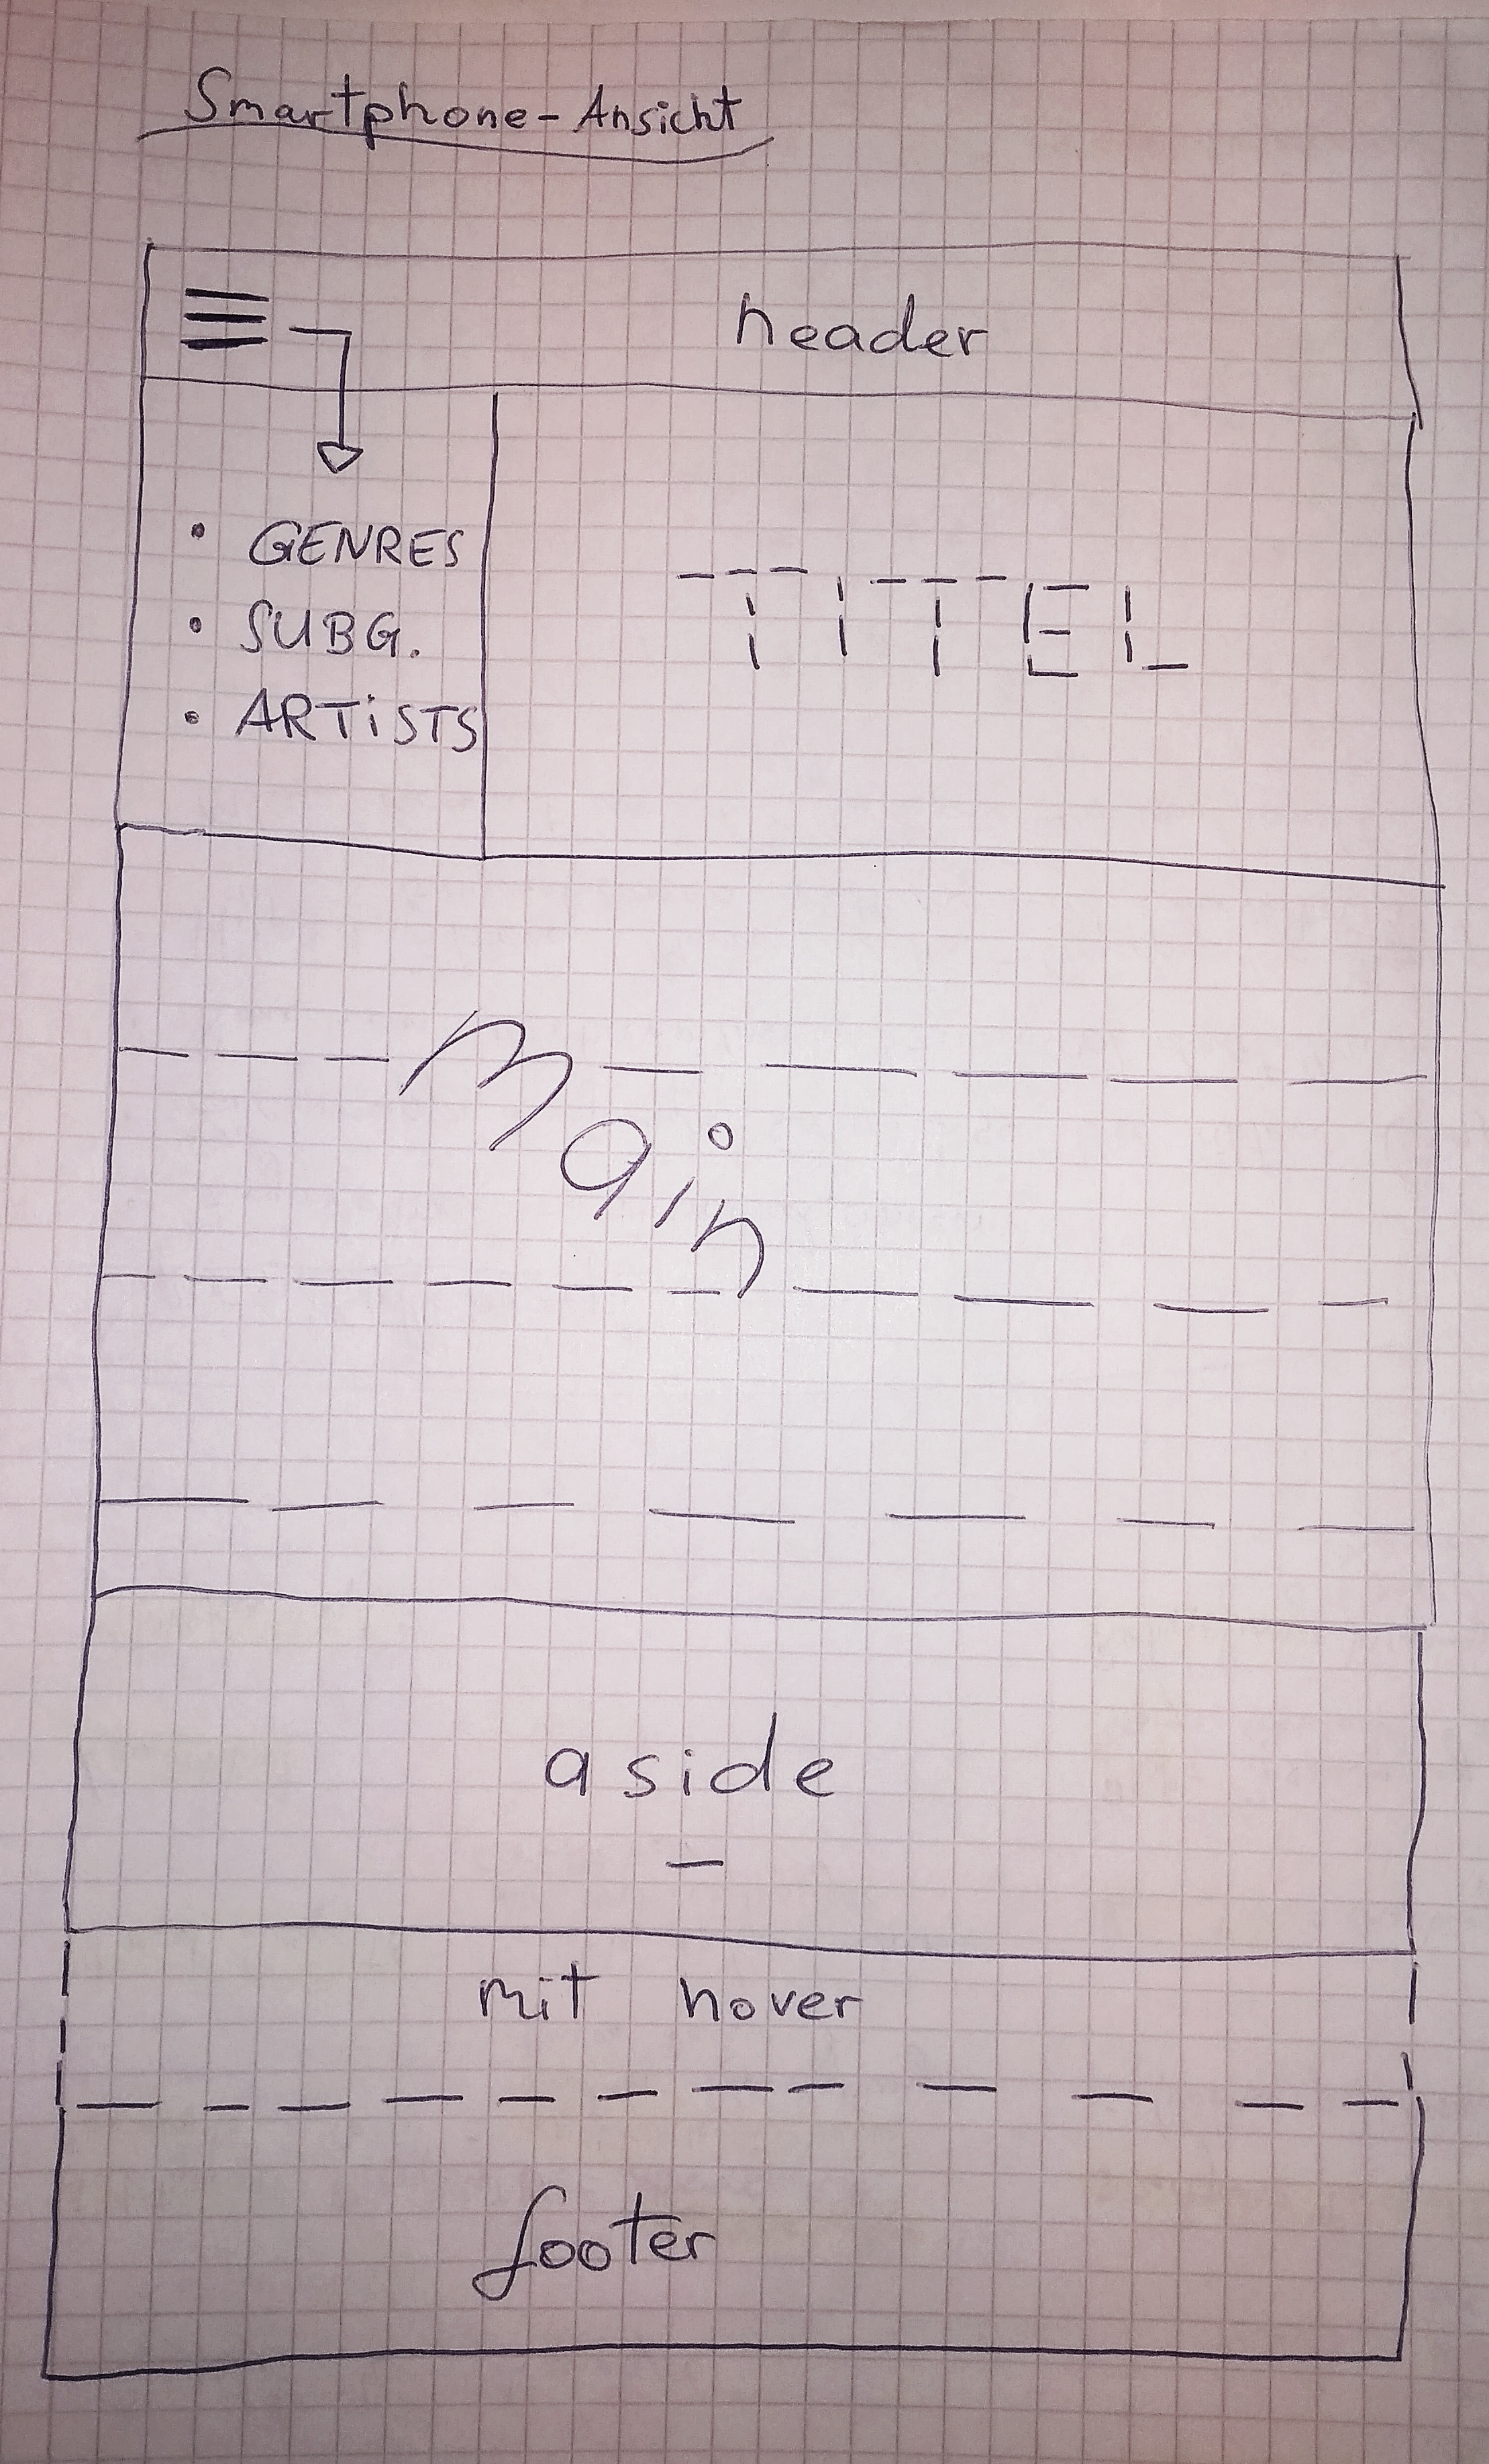 Smartphone-Ansicht
header
• GENRES
• SUBG.
• ARTiSTS
TiTEL
Main
aside
mit hover
footer